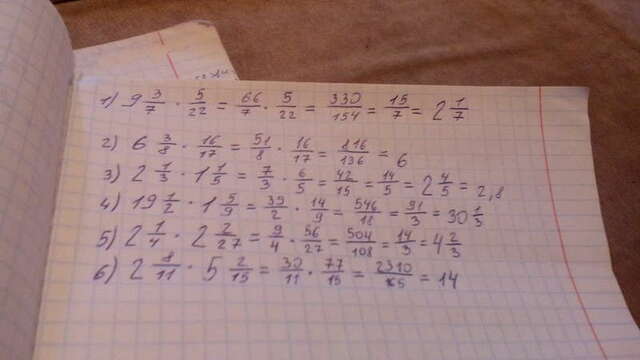 1) 9 3/7 · 5/22 = 66/7 · 5/22 = 330/154 = 15/7 = 2 1/7
2) 6 3/8 · 16/17 = 51/8 · 16/17 = 816/136 = 6
3) 2 1/3 · 1 1/5 = 7/3 · 6/5 = 42/15 = 14/5 = 2 4/5 = 2,8
4) 19 1/2 · 1 5/9 = 39/2 · 14/9 = 546/18 = 91/3 = 30 1/3
5) 2 1/4 · 2 2/27 = 9/4 · 56/27 = 504/108 = 14/3 = 4 2/3
6) 2 8/11 · 5 2/15 = 30/11 · 77/15 = 2310/165 = 14